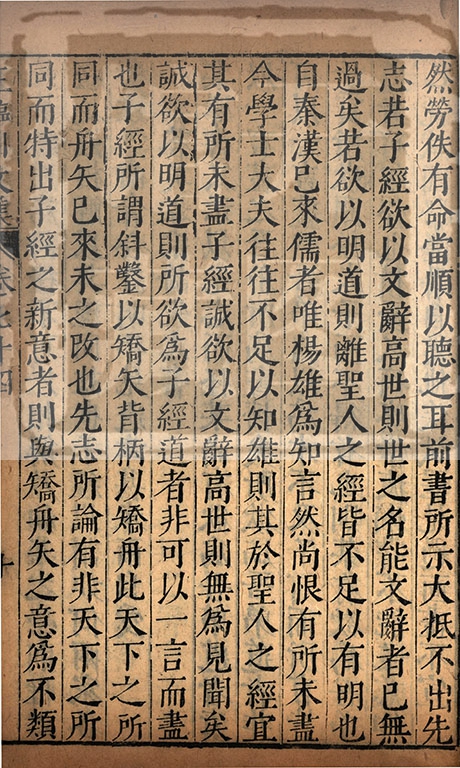 然勞佚有命當順以聽之耳前書所示大抵不出先
志若子經欲以文辭高世則世之名能文辭者已無
過矣若欲以明道則離聖人之經皆不足以有明也
自秦漢已來儒者唯楊雄為知言然尚恨有所未盡
今學士大夫往往不足以知雄則其於聖人之經宜
其有所未盡子經誠欲以文辭高世則無為見聞矣
誠欲以明道則所欲為子經道者非可以一言而盡
也子經所謂斜鑿以矯矢背柄以矯舟此天下之所
同而舟矢已來未之改也先志所論有非天下之所
同而特出子經之新意者則與矯舟矢之意為不類
王臨川文集 卷七十四 十